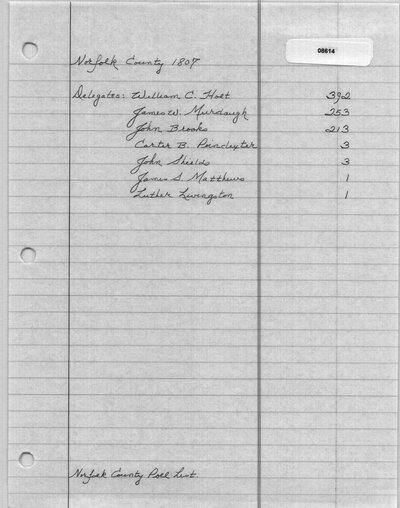 08614
Norfolk County 1807
Delegates: William C. Holt 392
James W. Murdaugh 253
John Brooks 213
Carter B. Poindexter 3
John Shields 3
James S. Matthews 1
Luther Livingston 1
Norfolk County Poll List.